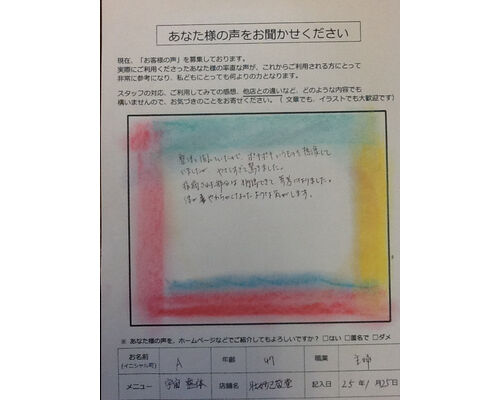 あなた様の声をお聞かせください
現在、「お客様の声」を募集しております。
実際にご利用くださったあなた様の率直な声が、これからご利用される方にとって
非常に参考になり、私どもにとっても何よりの力となります。
スタッフの対応、ご利用してみての感想、他店との違いなど、どのような内容でも
構いませんので、お気づきのことをお寄せください。（ 文章でも、イラストでも大歓迎です）
整体と聞いていたので、ボキボキいうものを想像して
いましたが、やさしすぎて驚きました。
できて 参考になりました。
ような気がします。
※ あなた様の声を、ホームページなどでご紹介してもよろしいですか？ □はい □匿名で □ダメ
お名前 A 年齢 47 職業 主婦
(イニシャル可)
メニュー 宇宙整体 店舗名 記入日 25年1月25日